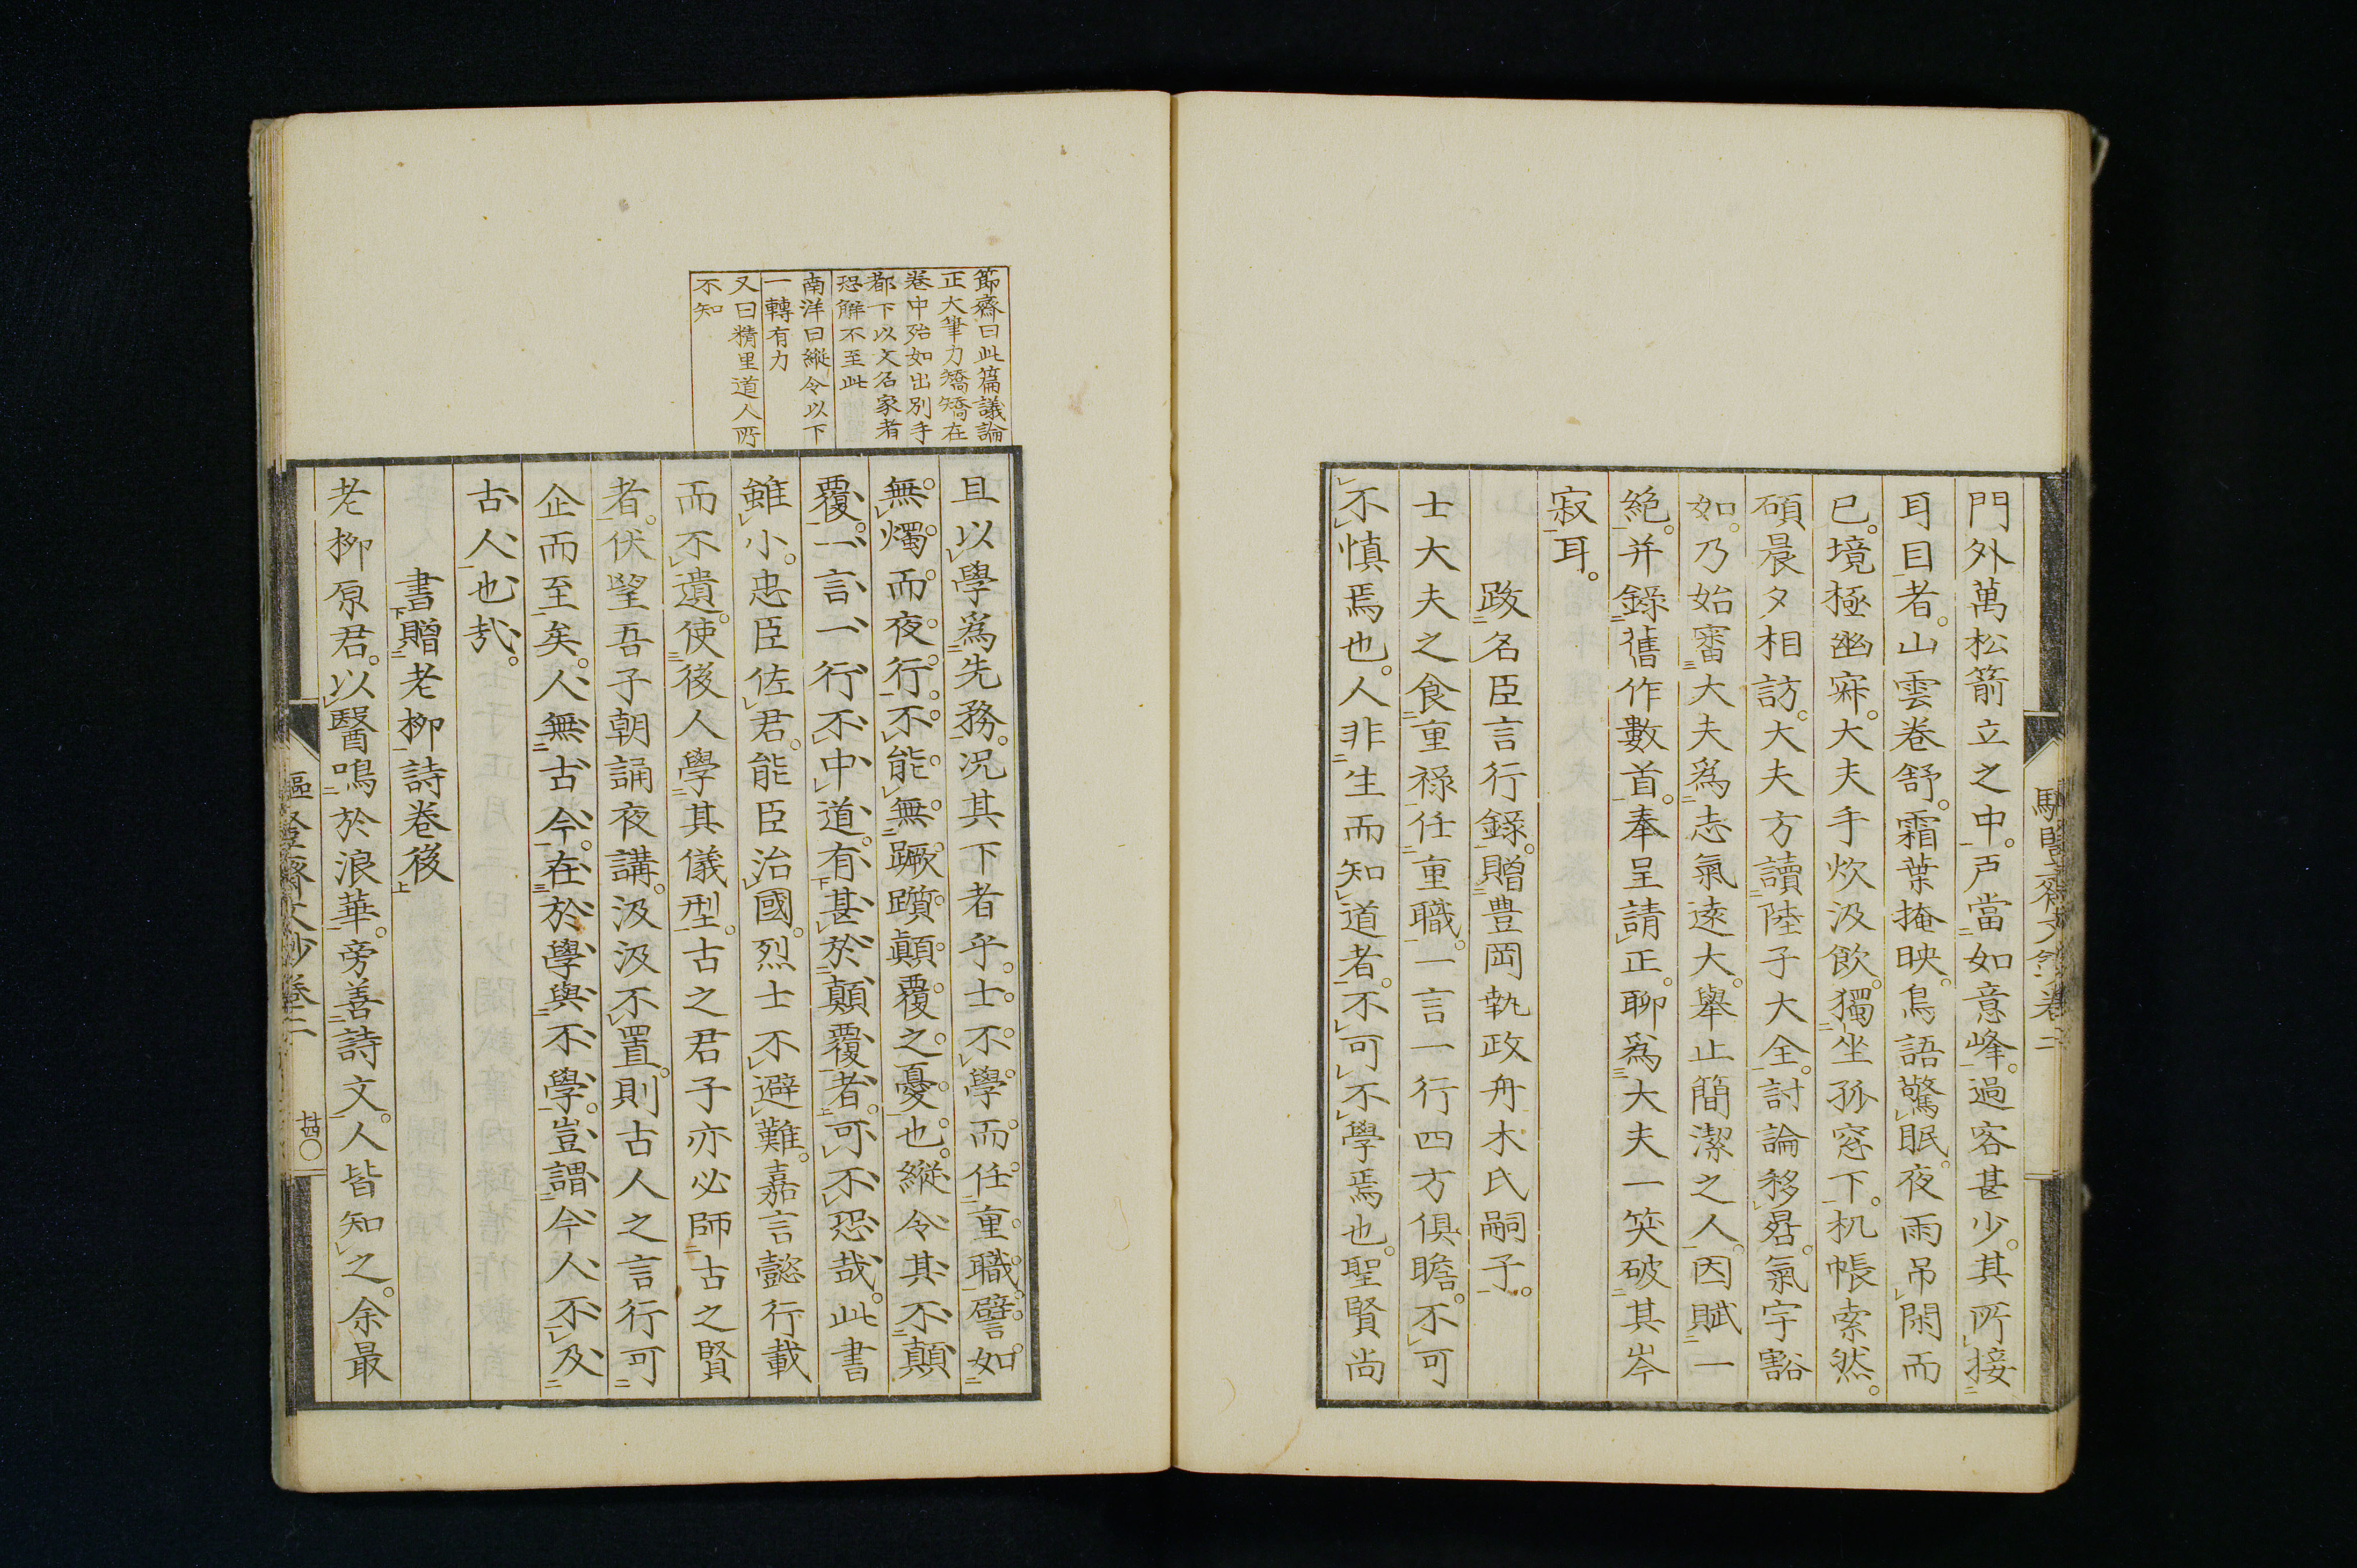 門外萬松箭立之中。戸當如意峰。過客甚少。其所接
耳目者。山雲卷舒。霜葉掩映。鳥語驚眠。夜雨吊閑而
已。境極幽寂。大夫手炊汲飲。獨坐孤窓下。机帳索然。
碩晨夕相訪。大夫方讀陸子大全。討論移晷。氣宇豁
如。乃始審大夫爲志氣遠大。舉止簡潔之人。因賦一
絶。并錄舊作數首。奉呈請正。聊爲大夫一笑破其岑
寂耳。
跋名臣言行錄。贈豊岡執政舟木氏嗣子。
士大夫之食重祿任重職。一言一行四方俱瞻。不可
不慎焉也。人非生而知道者。不可不學焉也。聖賢尚
且以學爲先務。況其下者乎。士不學而任重職。譬如
無燭而夜行。不能無蹶躓顛覆之憂也。縱令其不顛
覆。一言一行不中道。有甚於顛覆者。可不恐哉。此書
雖小。忠臣佐君。能臣治國。烈士不避難。嘉言懿行載
而不遺。使後人學其儀型。古之君子亦必師古之賢
者。伏望吾子朝誦夜講。汲汲不置。則古人之言行可
企而至矣。人無古今。在於學與不學。豈謂今人不及
古人也哉。
書贈老柳詩卷後
老柳原君。以醫鳴於浪華。旁善詩文。人皆知之。余最
節齋曰此篇議論
正大筆力矯矯在
卷中殆如出別手
都下以文名家者
恐解不至此
南洋曰縱令以下
一轉有力
又曰精里道人所
不知
齋文鈔卷二
廿四